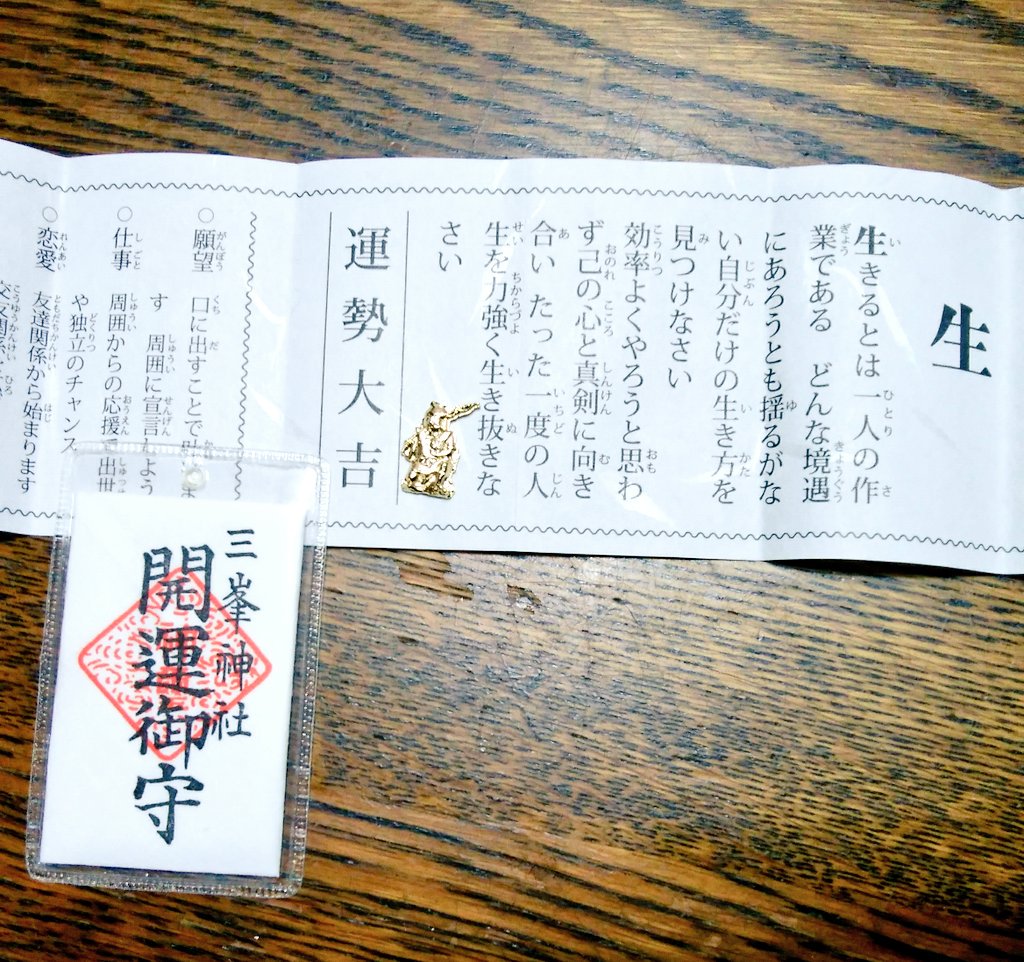 生
生きるとは 一人の作
業である どんな境遇
にあろうとも揺るがな
い自分だけの生き方を
見つけなさい
効率よくやろうと思わ
ず己の心と真剣に向き
合い たった一度の人
生を力強く生き抜きな
さい
運勢大吉
○願望 口に出すことで
す 周囲に宣言しよう
○仕事 周囲からの応援で出世
や独立のチャンス
○恋愛 友達関係から始まります
三峯神社
開運御守